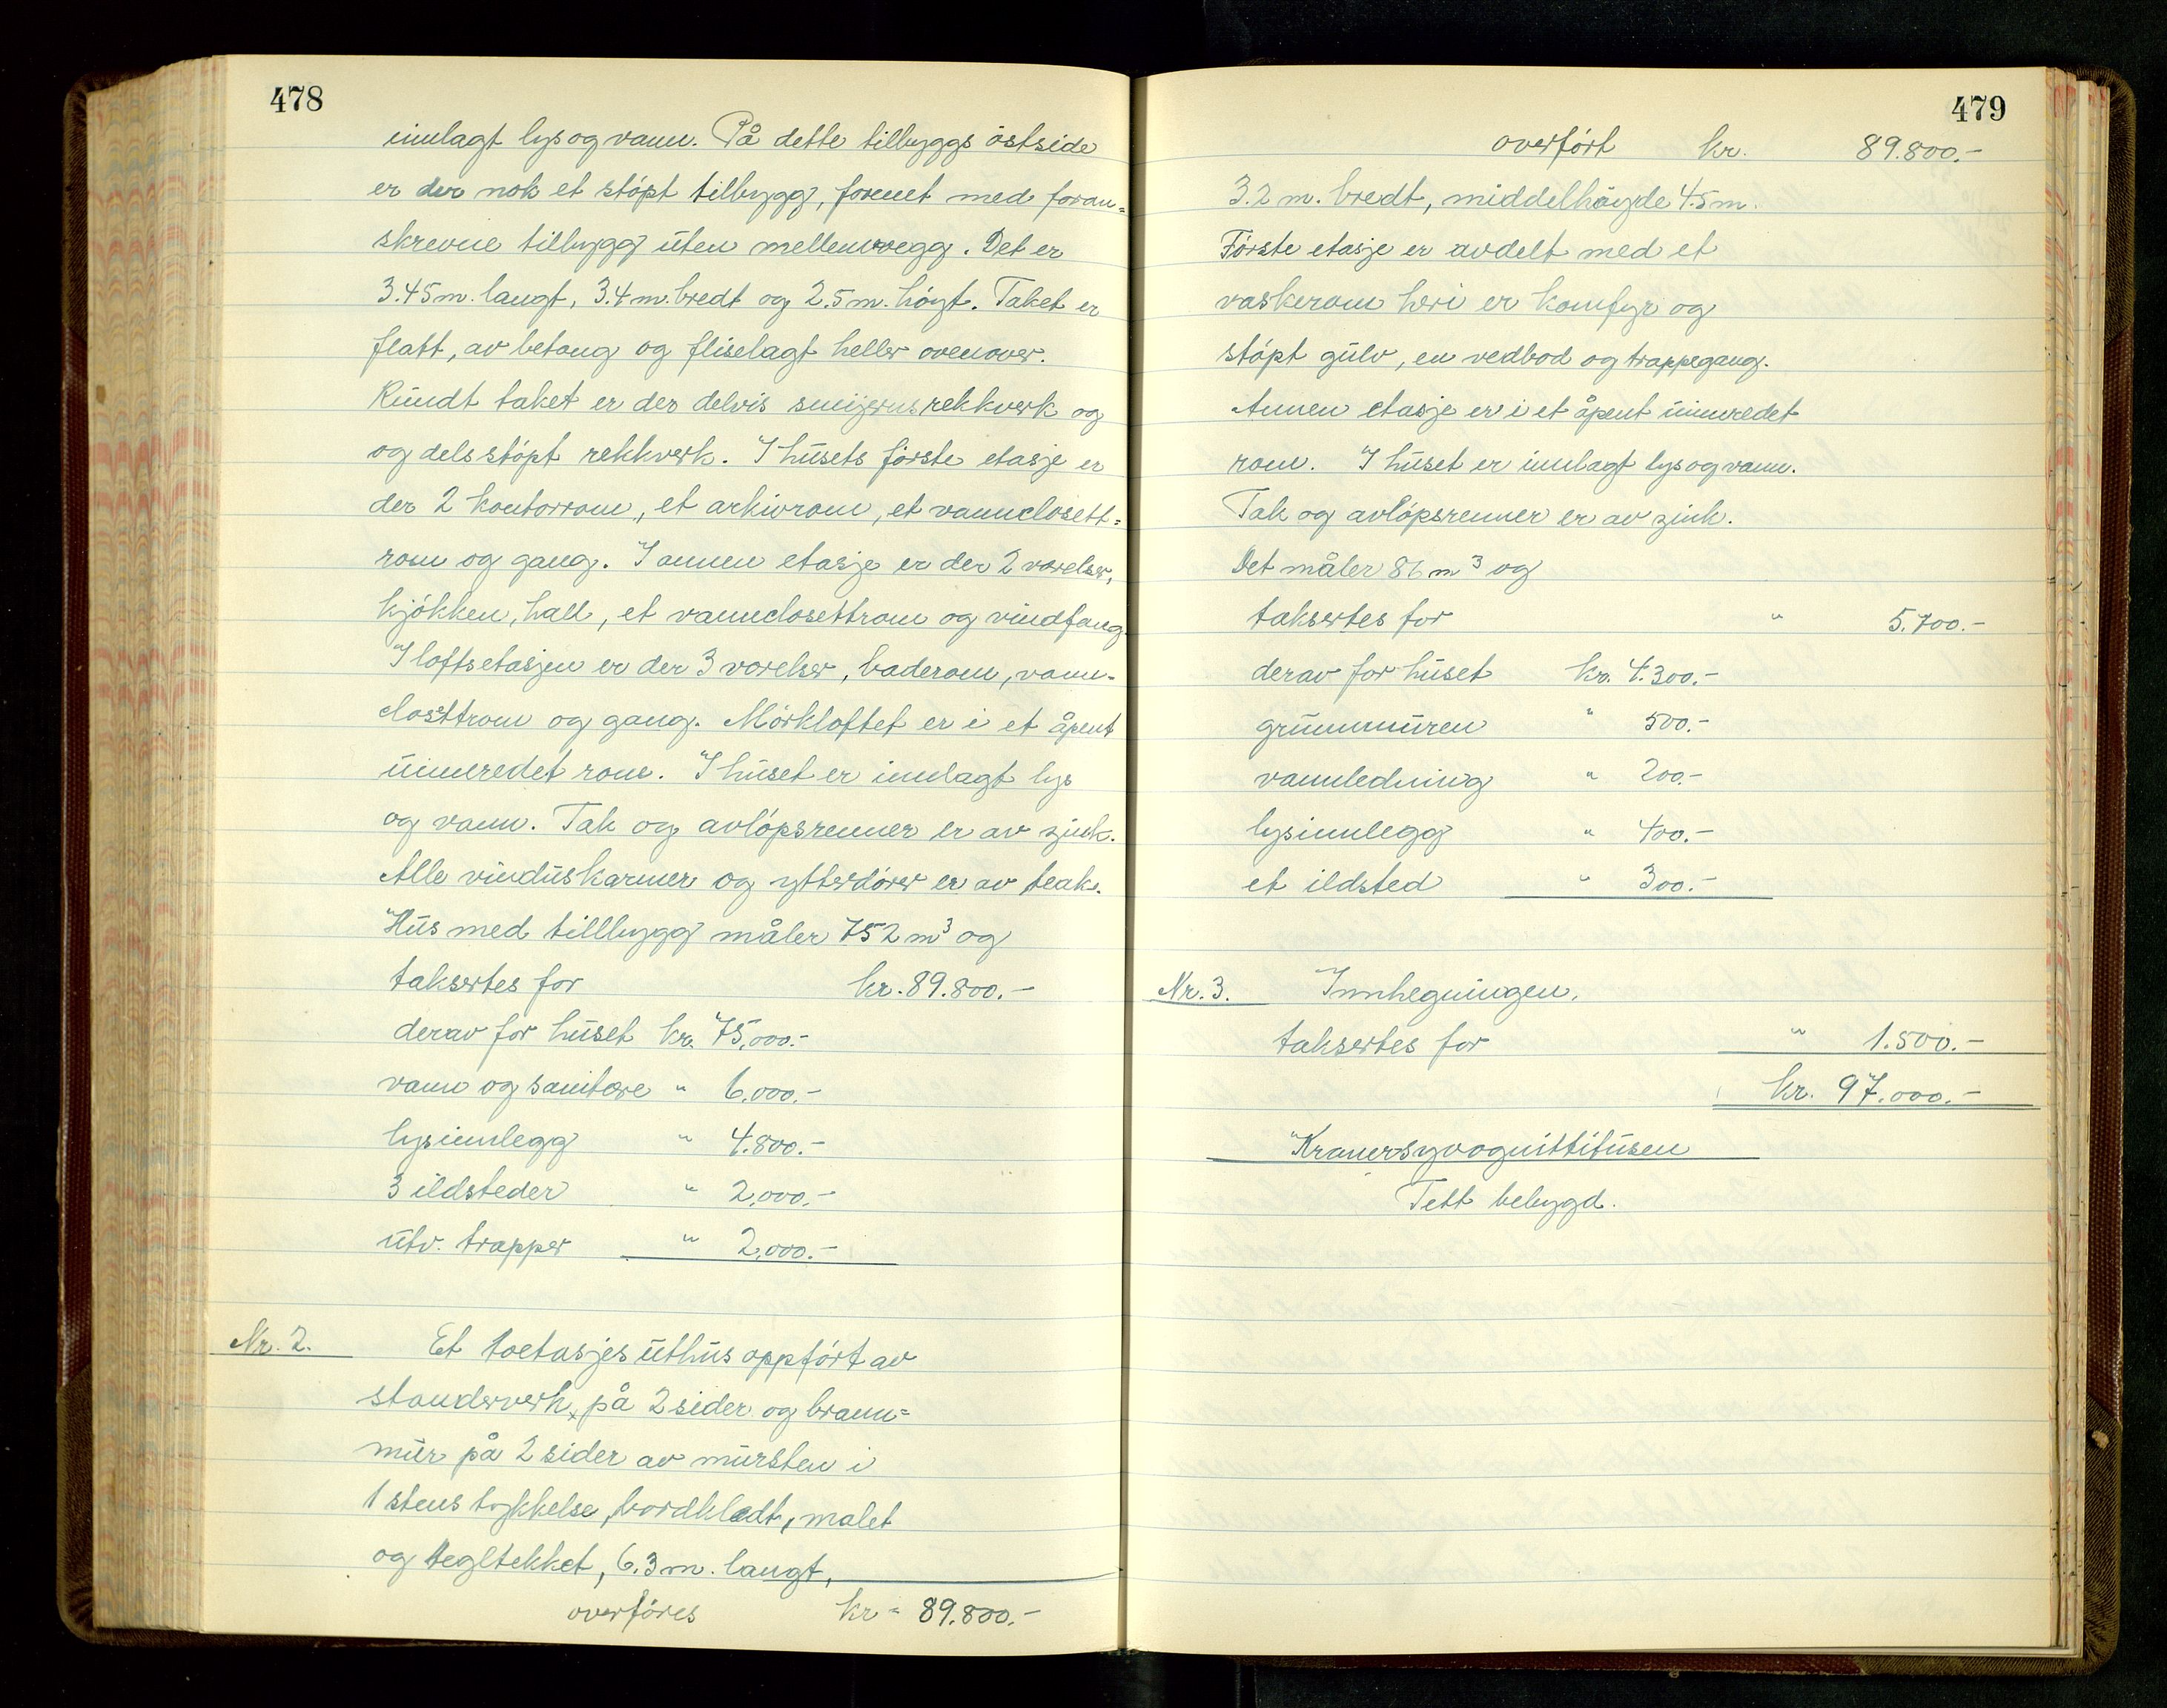 478
innlagt lys og vann. På dette tilbyggs östside
er der nok et stöpt tilbygg, forenet med foran=
skrevne tilbygg uten mellemvegg. Det er
3.45 m. langt, 3.4 m. bredt og 2.5 m. höyt. Taket er
flatt, av betong og fliselagt heller ovenover.
Rundt taket er der delvis smijernsrekkverk og
og dels stöpt rekkverk. I husets förste etasje er
der 2 kontorrom, et arkivrom, et vannclosett=
rom og gang. I annen etasje er der 2 værelser,
kjökken, hall, et vannclosettrom og vindfang.
I loftsetasjen er der 3 værelser, baderom, vann-
closettrom og gang. Mörkloftet er i et åpent
uinnredet rom. I huset er innlagt lys
og vann. Tak og avlöpsrenner er av zink.
Alle vinduskarmer og ytterdörer er av teak.
Hus med tillbygg måler 752 m³ og
taksertes for kr. 89.800.-
derav for huset kr. 75.000.-
vann og sanitære " 6.000.-
lysinnlegg " 4.800.-
3 ildsteder " 2.000.-
utv. trapper " 2.000.-
Nr. 2. Et toetasjes uthus oppfört av
standerverk, på 2 sider og brann=
mur på 2 sider av mursten i
1 stens tykkelse, bordklædt, malet
og tegltekket, 6.3 m. langt,
overföres kr " 89.800.-
479
overfört kr. 89.800.-
3.2 m. bredt, middelhöyde 4.5 m.
Förste etasje er avdelt med et
vaskerom heri er komfyr og
stöpt gulv, en vedbod og trappegang.
Annen etasje er i et åpent uinnredet
rom. I huset er innlagt lys og vann.
Tak og avlöpsrenner er av zink.
Det måler 86 m³ og
taksertes for " 5.700.-
derav for huset kr. 4.300.-
grunnmuren " 500.-
vannledning " 200.-
lysinnlegg " 400.-
et ildsted " 300.-
Nr. 3. Innhegningen.
taksertes for " 1.500.-
kr. 97.000.-
Tett bebygd.